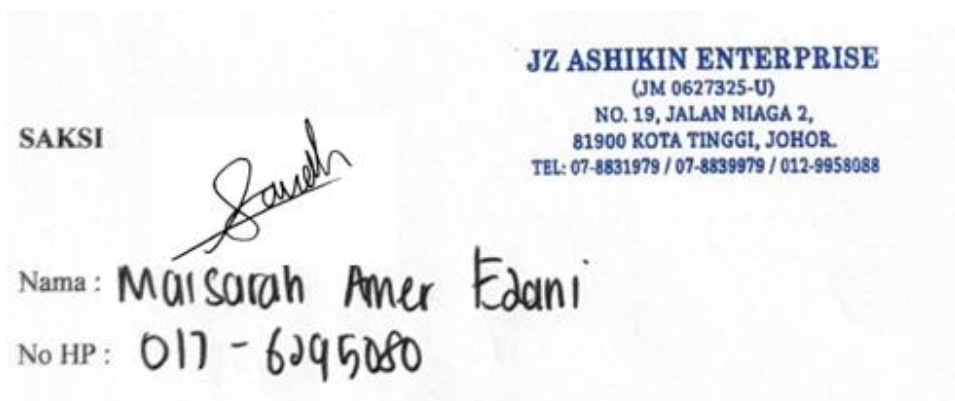 JZ ASHIKIN ENTERPRISE
(JM 0627325-U)
NO. 19, JALAN NIAGA 2,
81900 KOTA TINGGI, JOHOR.
TEL: 07-8831979 / 07-8839979 / 012-9958088
SAKSI
Nama : Maisarah Amer
No HP : 017 - 6295080